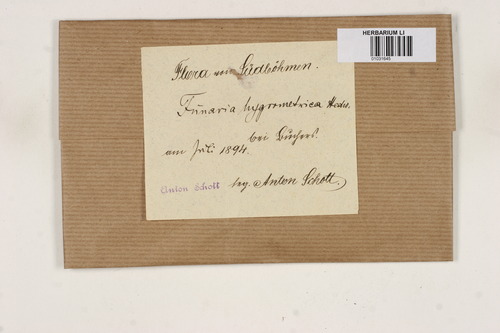 HERBARIUM LI
01031645
Flora von Südböhmen.
Funaria hygrometrica Hedw.
bei Buchers
am Juli 1894.
Anton Schott leg. Anton Schott.